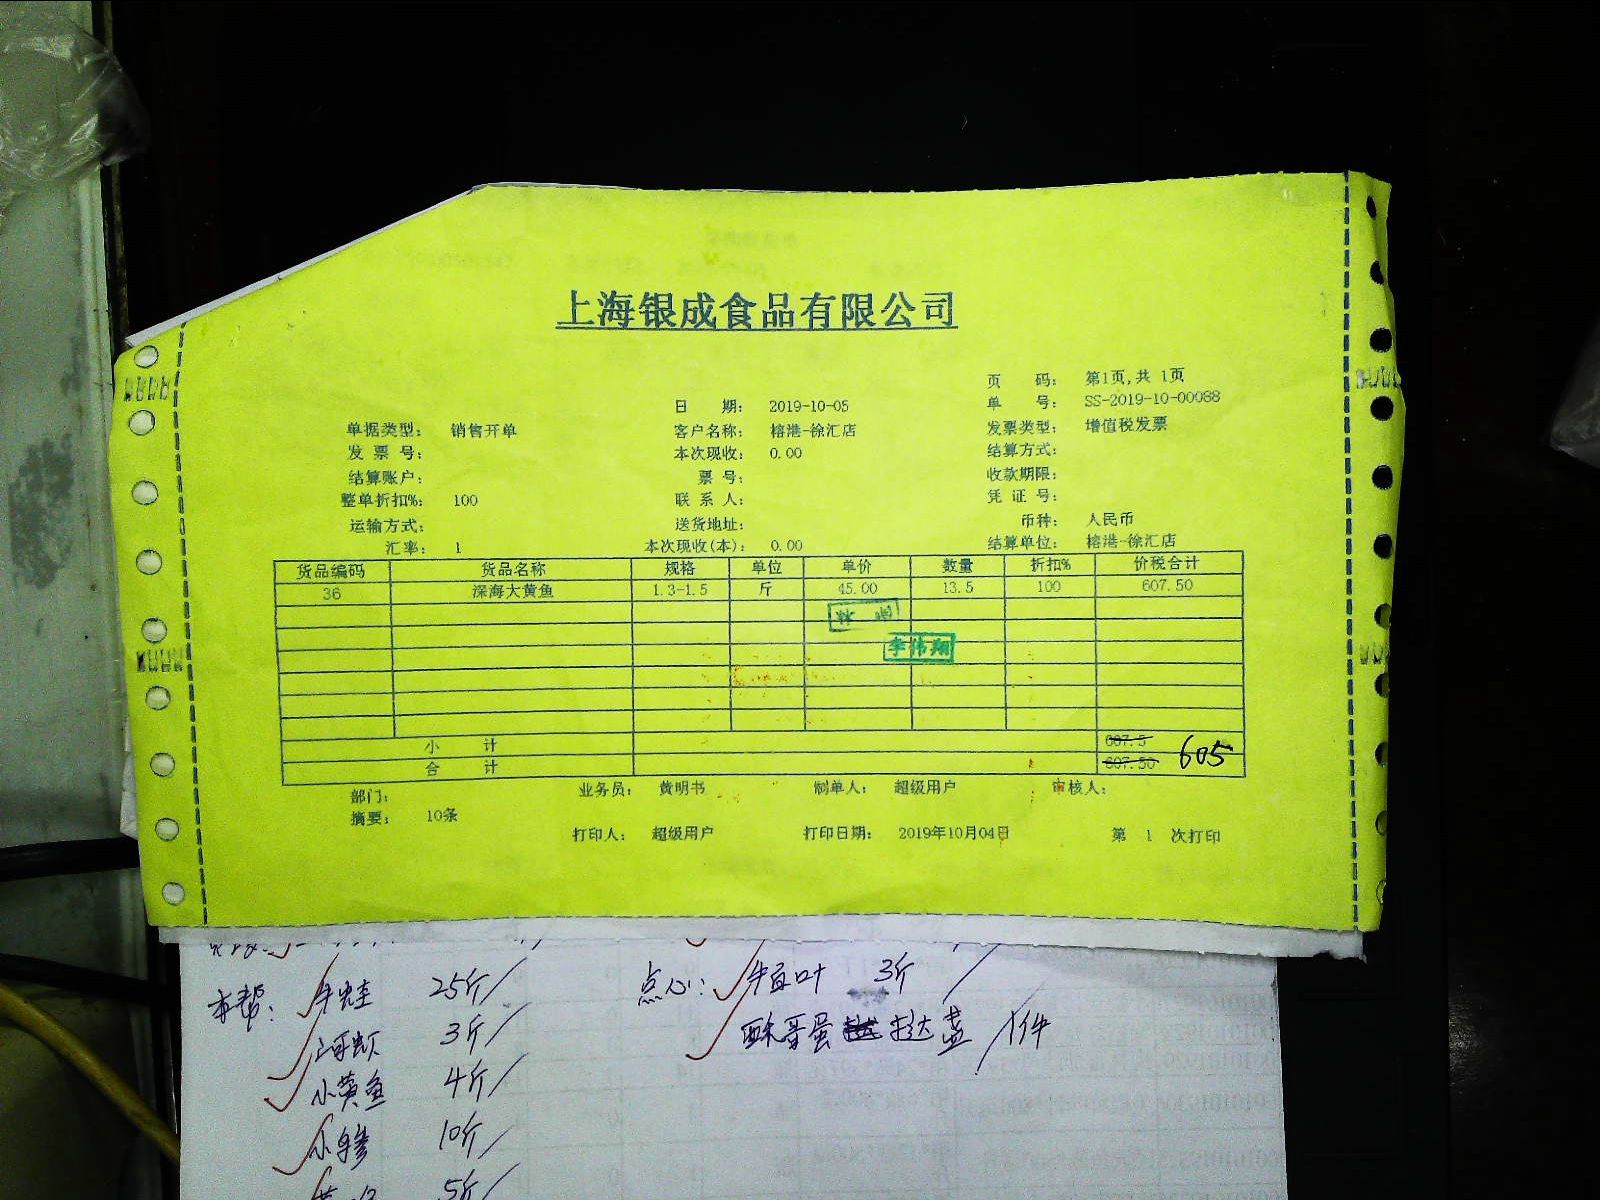 上海银成食品有限公司
页 码： 第1页,共 1页
日 期： 2019-10-05 单 号： SS-2019-10-00088
单据类型： 销售开单 客户名称： 榕港-徐汇店 发票类型： 增值税发票
发 票 号： 本次现收： 0.00 结算方式：
结算账户： 票 号： 收款期限：
整单折扣%： 100 联 系 人： 凭 证 号：
运输方式： 送货地址： 币种： 人民币
汇率： 1 本次现收(本)： 0.00 结算单位： 榕港-徐汇店
货品编码 货品名称 规格 单位 单价 数量 折扣% 价税合计
36 深海大黄鱼 1.3-1.5 斤 45.00 13.5 100 607.50
李伟翔
小 计 607.5
合 计 607.50 605
部门： 业务员： 黄明书 制单人： 超级用户 审核人：
摘要： 10条
打印人： 超级用户 打印日期： 2019年10月04日 第 1 次打印
本帮： 牛蛙 25斤 点心： 牛百叶 3斤
河虾 3斤 酥哥蛋 挞盏 1件
小黄鱼 4斤
10斤
5斤